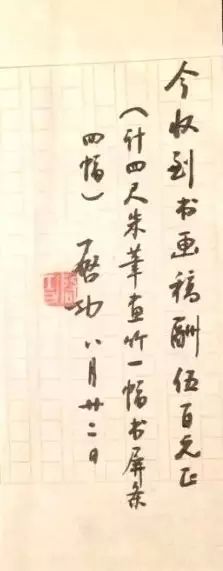 今收到书画稿酬伍百元正
(计四尺朱筆画竹一幅书屏条
四幅)
启功 八月廿二日
启功